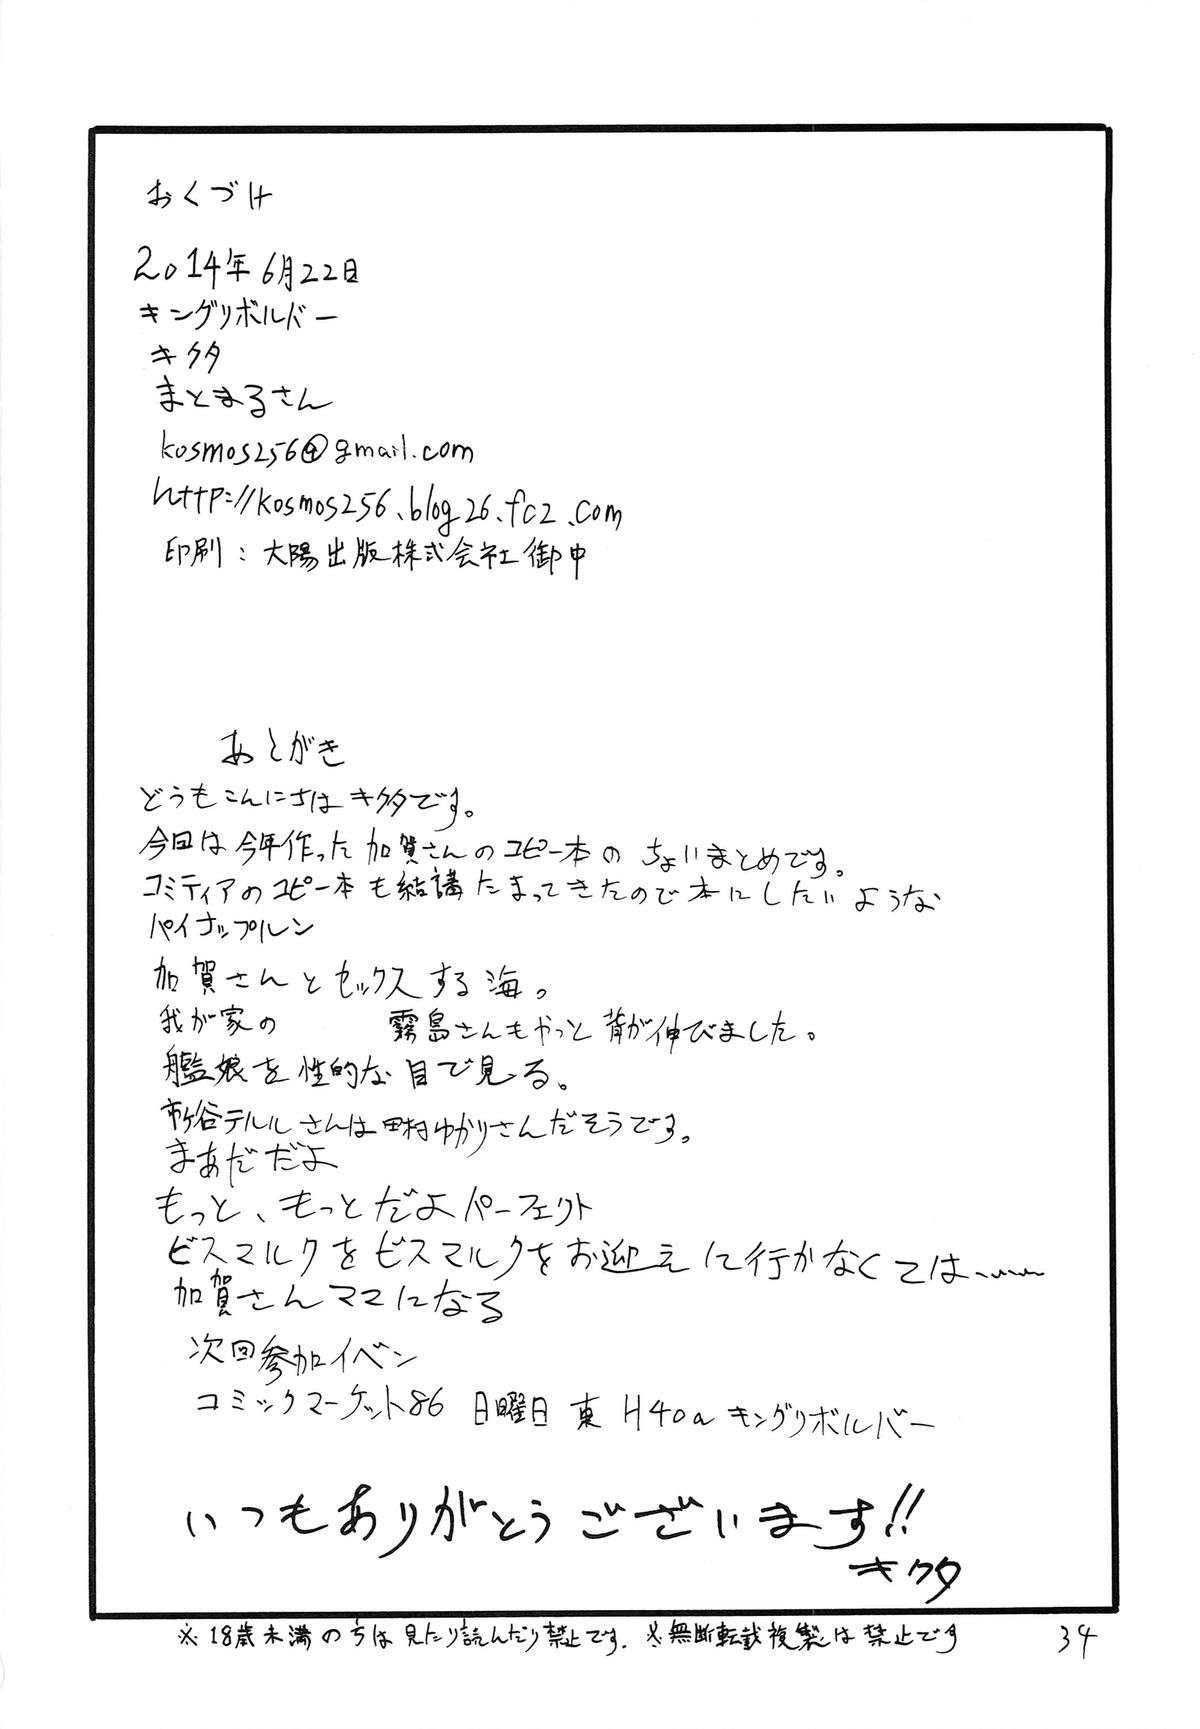 おくづけ
2014年6月22日
キングリボルバー
キクタ
まとまるさん
kosmos256@gmail.com
http://kosmos256.blog26.fc2.com
印刷：大陽出版株式会社御中
あとがき
どうもこんにちはキクタです。
今回は今年作った加賀さんのコピー本のちょいまとめです。
コミティアのコピー本も結講たまってきたので本にしたいような
パイナップルン
加賀さんとセックスする海。
我が家の 霧島さんもやっと背が伸びました。
艦娘を性的な目で見る。
市ヶ谷テルルさんは田村ゆかりさんだそうです。
まあだだよ
もっと、もっとだよパーフェクト
ビスマルクをビスマルクをお迎えに行かなくては……
加賀さんママになる
次回参加イベン
コミックマーケット86 日曜日 東 H40a キングリボルバー
いつもありがとうございます!!
キクタ
※18歳未満の方は見たり読んだり禁止です. ※無断転載複製は禁止です
34